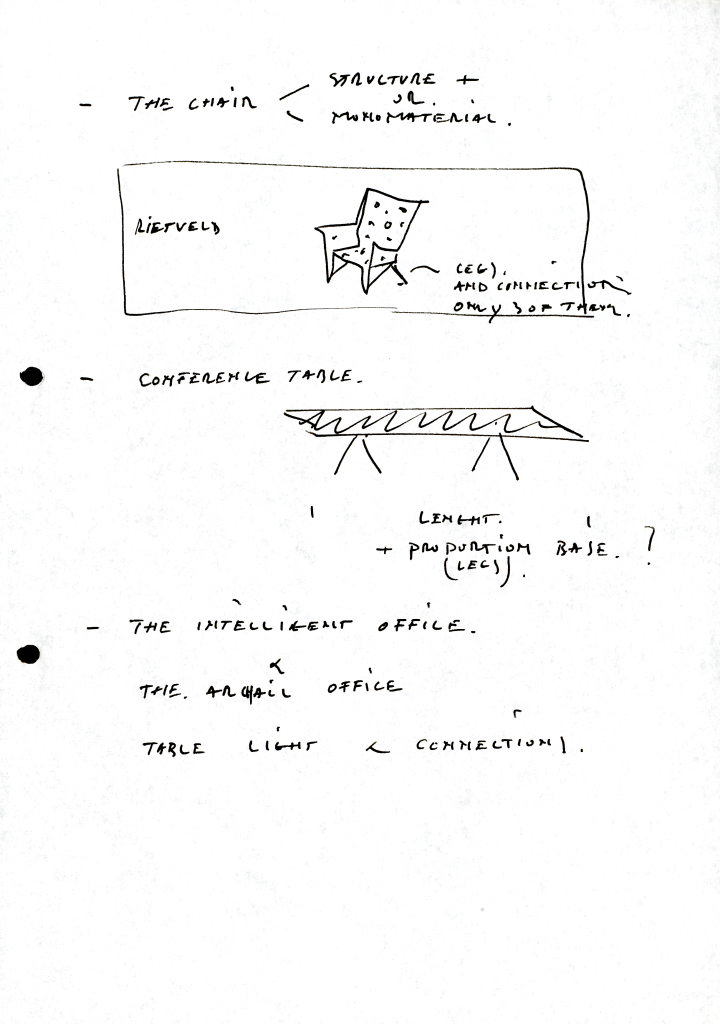 - THE CHAIR < STRUCTURE +
OR.
MONOMATERIAL.
RIETVELD
LEGS.
AND CONNECTION
ONLY 3 OF THEM.
- CONFERENCE TABLE.
LENGHT.
+ PROPORTION BASE. ?
(LEGS).
- THE INTELLIGENT OFFICE.
&
THE ARCHAIC OFFICE
TABLE LIGHT & CONNECTIONS.